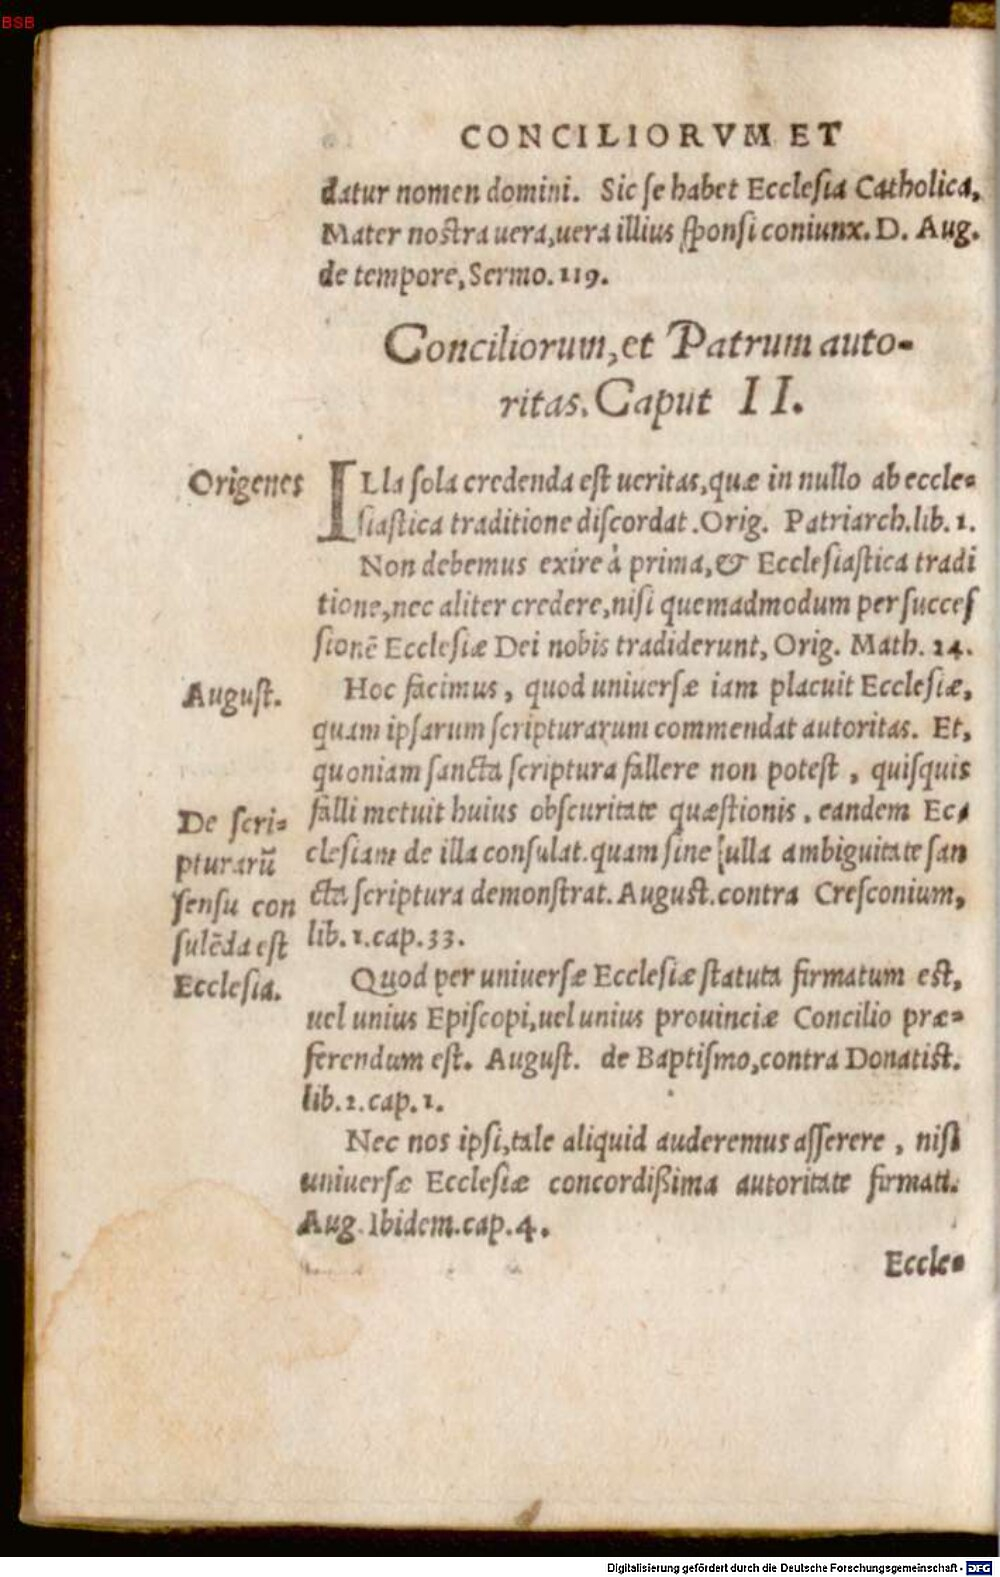 BSB
CONCILIORVM ET
datur nomen domini. Sic ſe habet Eccleſia Catholica,
Mater noſtra uera, uera illius ſponſi coniunx. D. Aug.
de tempore, Sermo. 119.
Conciliorum, et Patrum auto-
ritas. Caput II.
Origenes
ILla ſola credenda eſt ueritas, quæ in nullo ab eccle-
ſiaſtica traditione diſcordat. Orig. Patriarch. lib. 1.
Non debemus exire à prima, & Eccleſiaſtica tradi
tione, nec aliter credere, niſi quemadmodum per ſucceſ
ſionē Eccleſiæ Dei nobis tradiderunt, Orig. Math. 24.
Auguſt.
Hoc facimus, quod uniuerſæ iam placuit Eccleſiæ,
quam ipſarum ſcripturarum commendat autoritas. Et,
quoniam ſancta ſcriptura fallere non poteſt, quiſquis
De ſcri-
pturarū
ſenſu con
ſulēda eſt
Eccleſia.
falli metuit huius obſcuritate quæſtionis, eandem Ec-
cleſiam de illa conſulat. quam ſine ulla ambiguitate ſan
cta ſcriptura demonſtrat. Auguſt. contra Creſconium,
lib. 1. cap. 33.
Quod per uniuerſæ Eccleſiæ ſtatuta firmatum eſt,
uel unius Epiſcopi, uel unius prouinciæ Concilio præ-
ferendum eſt. Auguſt. de Baptiſmo, contra Donatiſt.
lib. 2. cap. 1.
Nec nos ipſi, tale aliquid auderemus aſſerere, niſi
uniuerſæ Eccleſiæ concordißima autoritate firmati.
Aug. Ibidem. cap. 4.
Eccle-
Digitalisierung gefördert durch die Deutsche Forschungsgemeinschaft - DFG